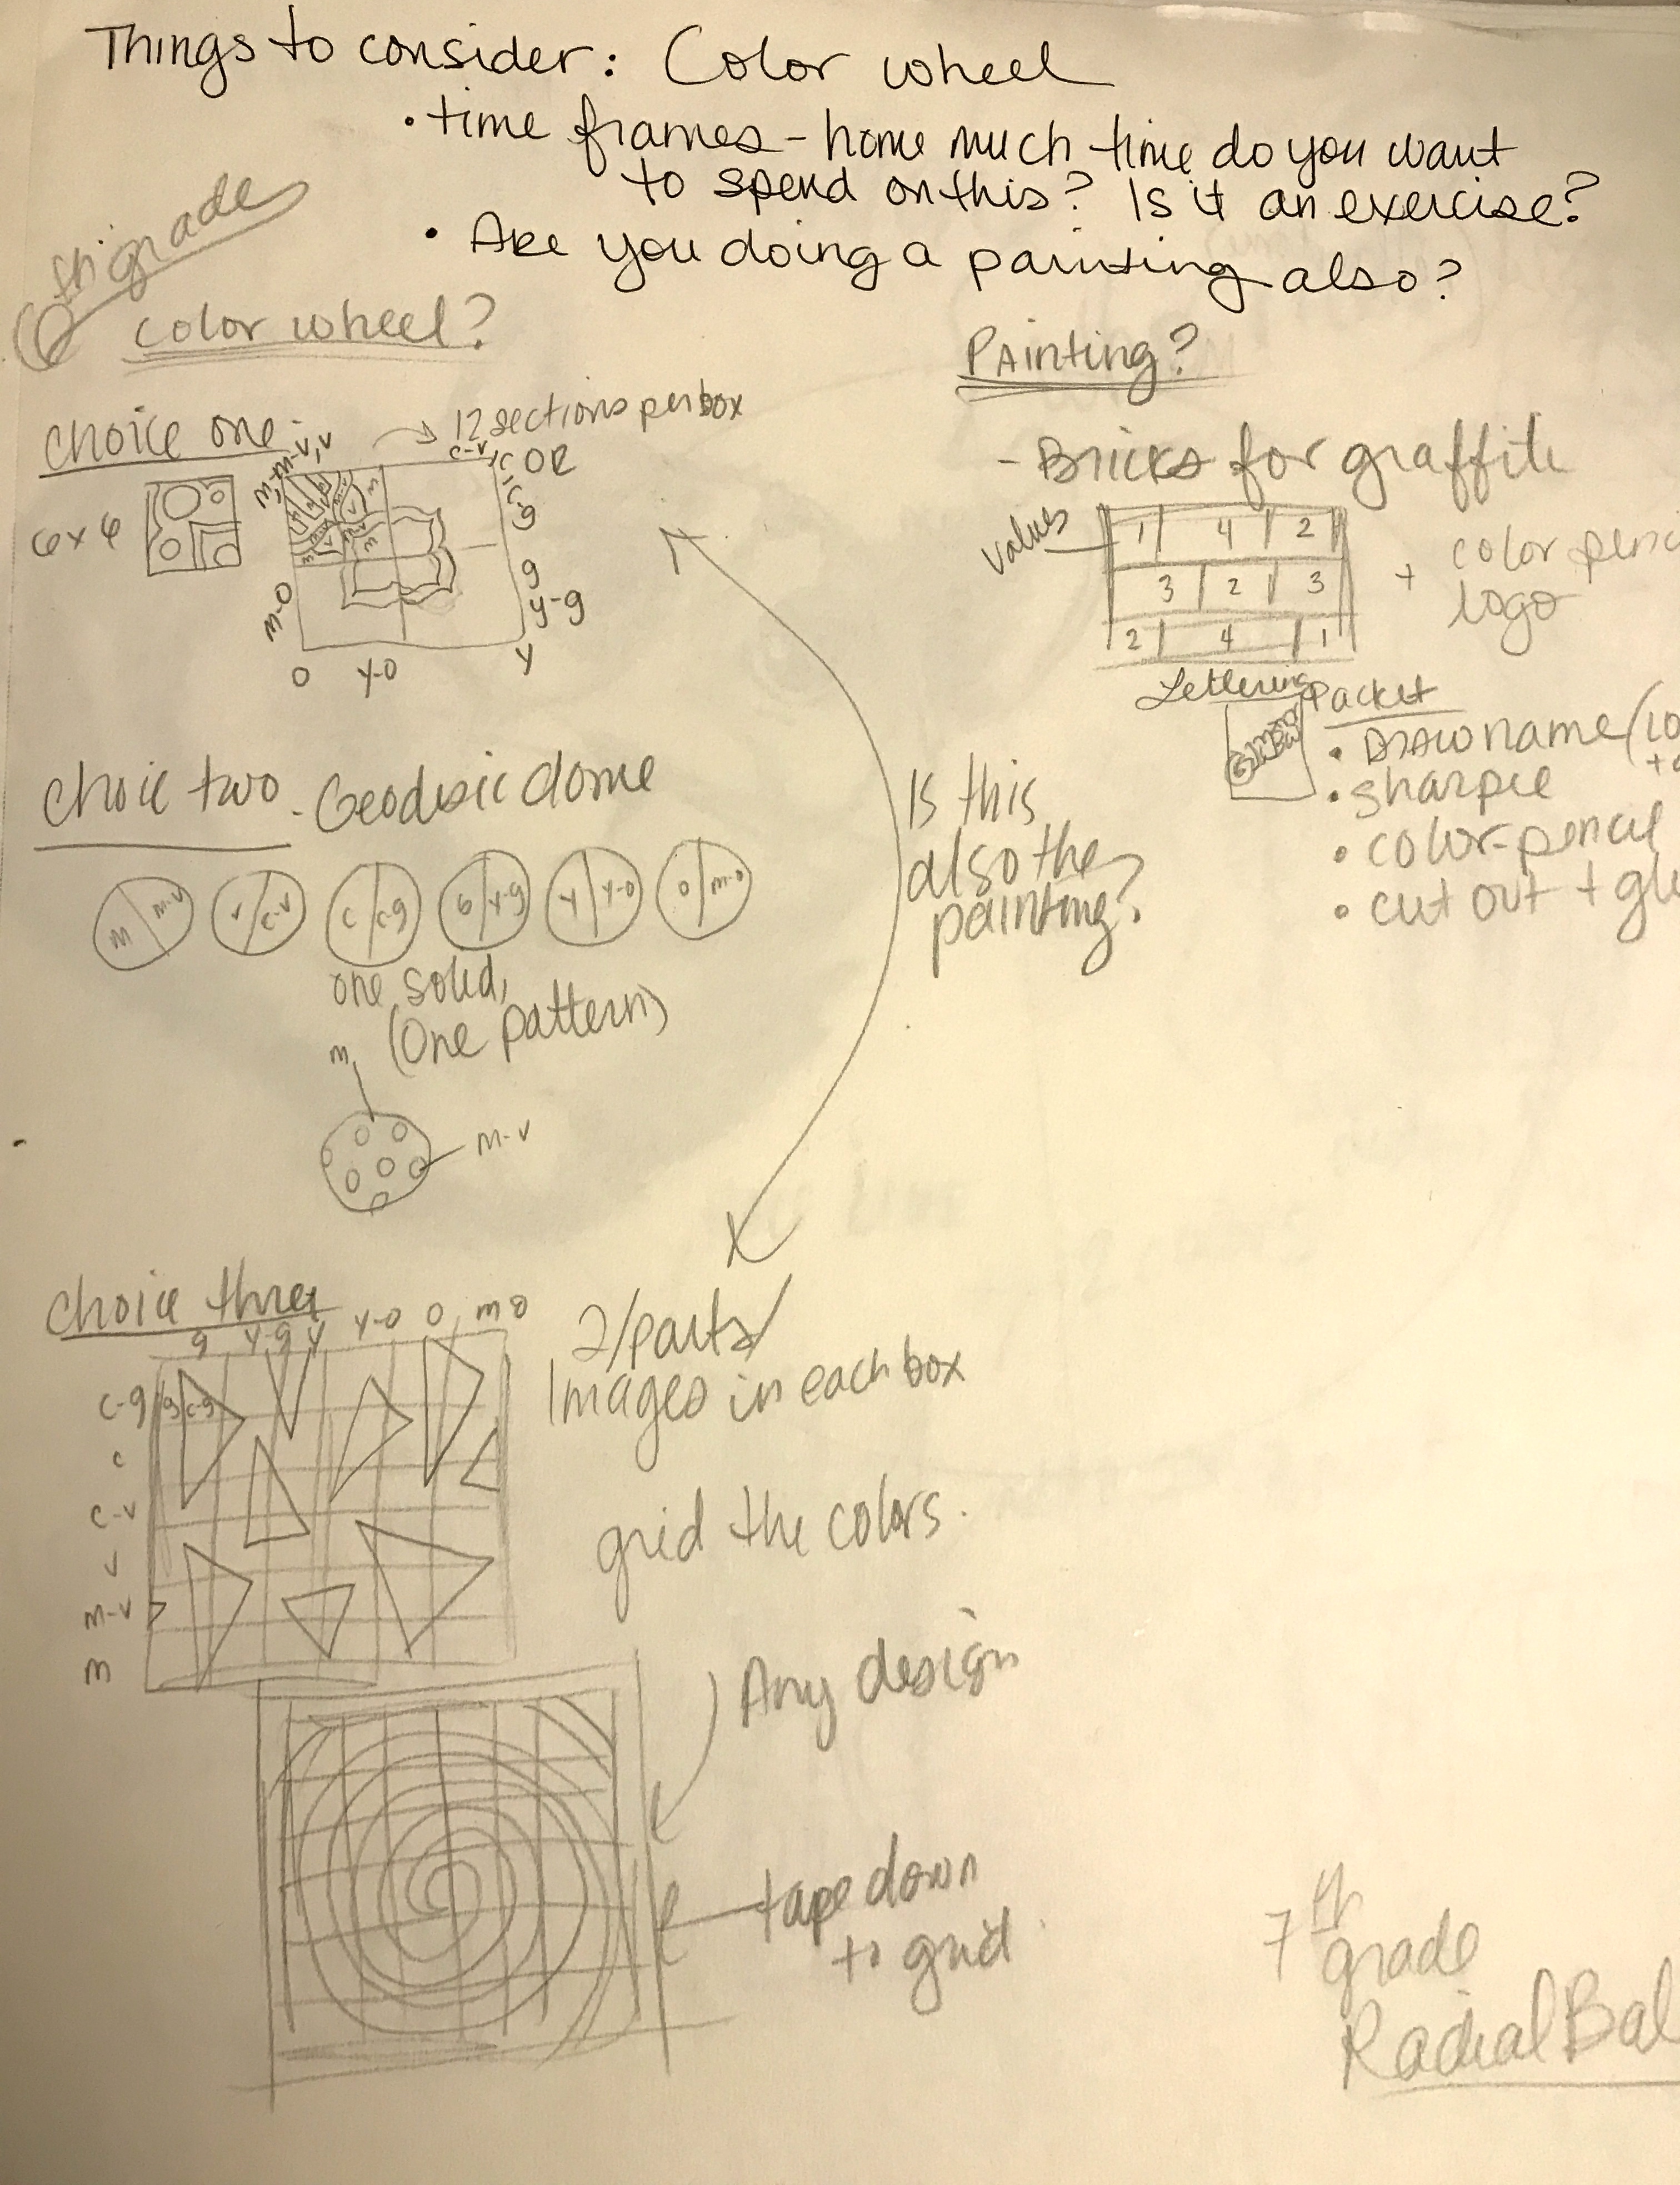 Things to consider: Color wheel
• time frames - home much time do you want
to spend on this? Is it an exercise?
• Are you doing a painting also?
6th grade
color wheel?
Painting?
choice one.
→ 12 sections per box
OR
6 x 6
m-v
v
c-v
c
c-g
g
y-g
y
y-o
o
m-o
- Bricks for graffiti
values
1 4 2
3 2 3
2 4 1
+ color penc
logo
Lettering Packet
• Draw name (lo
• sharpie
• color-pencil
• cut out + glu
choic two. Geodesic dome
m m-v
v c-v
c c-g
G y-g
y y-o
o m-o
one solid,
(One pattern)
m
m-v
Is this
also the
painting?
choice three
g y-g y y-o o m o
c-g g c-g
c
c-v
v
m-v
m
2/parts/
Images in each box
grid the colors.
Any design
tape down
to grid
7th
grade
Radial Bal